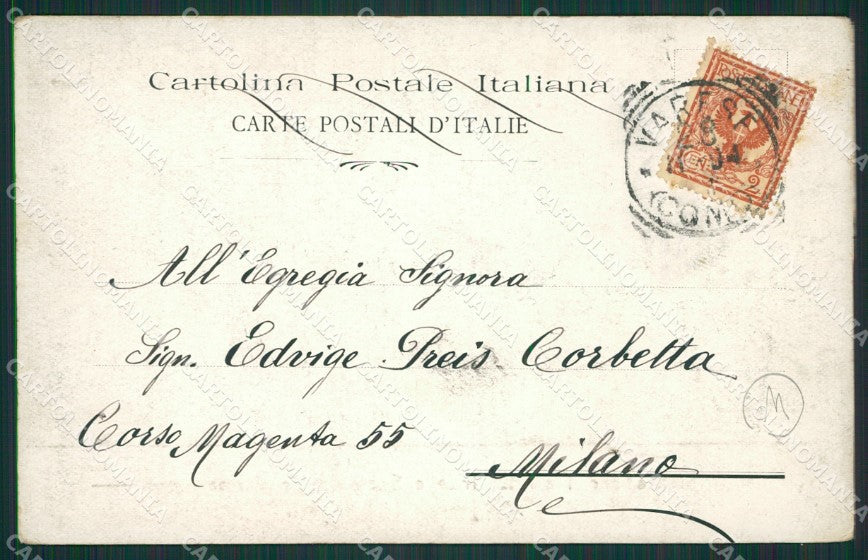 Cartolina Postale Italiana
CARTE POSTALI D'ITALIE
VARESE
(COMO)
All' Egregia Signora
Sign. Edvige Preis Corbetta
Corso Magenta 55
Milano
M
CARTOLINOMANIA